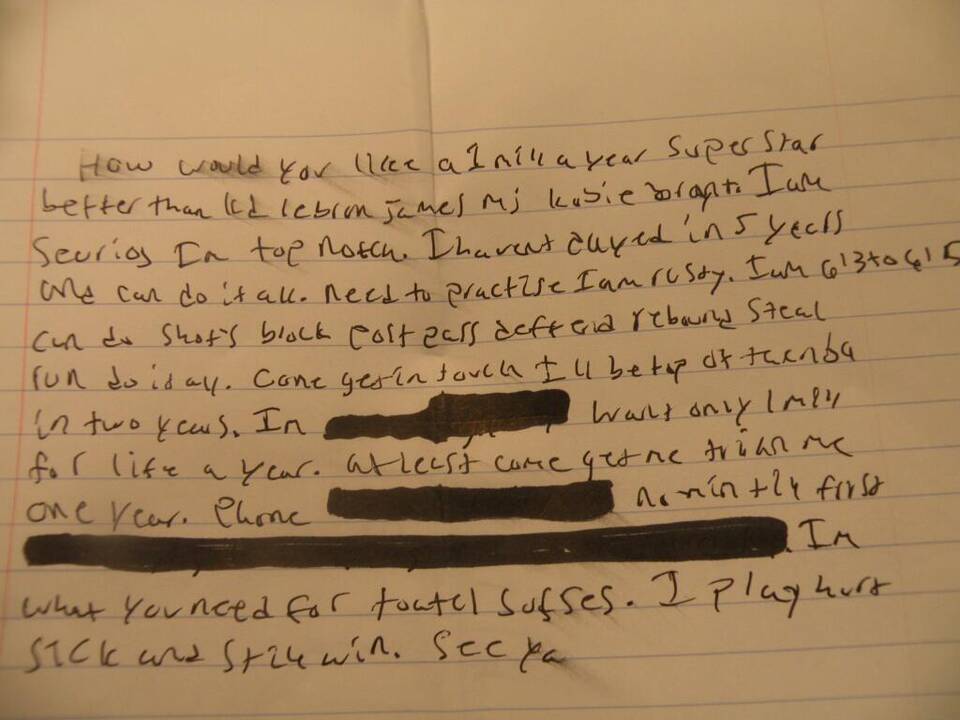 How would you like a 1 mill a year super star
better than kd lebron james mj kobie briant. I am
Seurios Im top notch. I havent played in 5 years
and can do it all. need to practise I am rusty. I am 613 to 615
can do shot's block post pass deffend rebound steal
run do it all. Come get in touch I ll be top of the nba
in two years. Im want only 1 mill
for life a year. at least come get me me
one year. Phone first
Im
what you need for toatel sufses. I play hurt
sick and still win. See ya